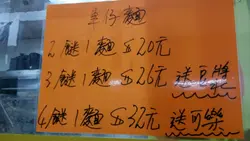 車仔麵
2餸1麵$20元
3餸1麵$26元 送豆漿
4餸1麵$32元 送可樂